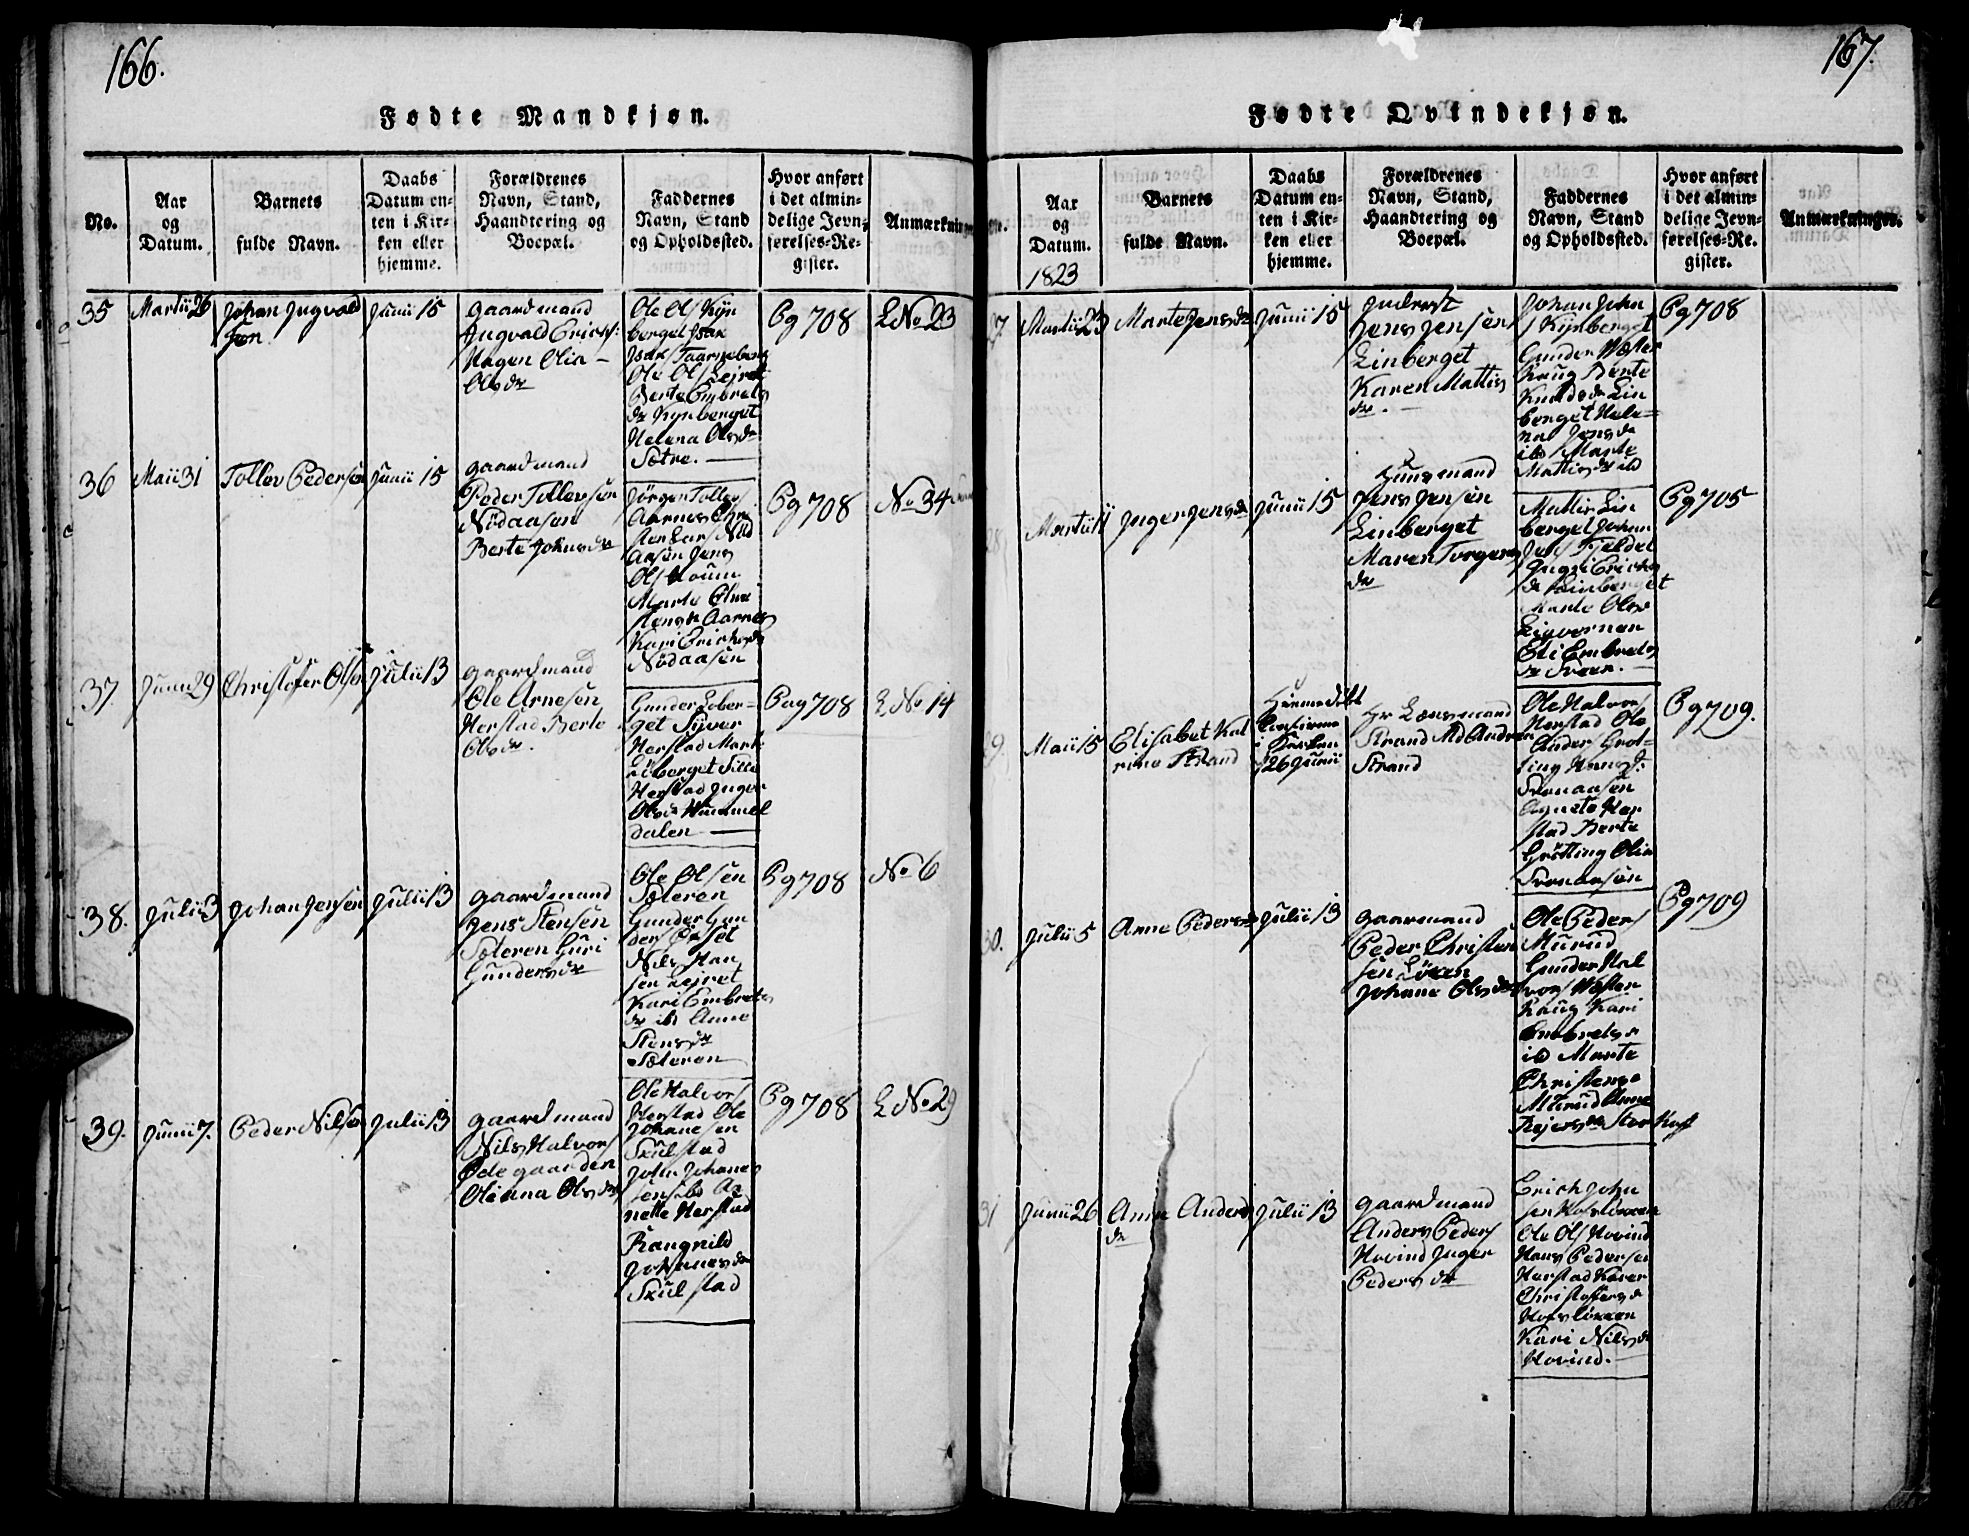 166.
Fødte Mandkjøn.
No.
Aar
og
Datum.
Barnets
fulde Navn.
Daabs
Datum en-
ten i Kir-
ken eller
hjemme.
Forældrenes
Navn, Stand,
Haandtering og
Boepæl.
Faddernes
Navn, Stand
og Opholdssted.
Hvor anført
i det almin-
delige Jevn-
førelses-Re-
gister.
Anmærkninger
35
Martii 26
Johan Ingvald
sen
Junii 15
gaardmand
Ingvald Erichs:
Hagen Olia -
Olsdr
Ole Ols Kÿn
berget Isak
Isaks Taarneberg
Ole Ols Lejret
Berte Embrets
dr Kÿnberget
Helena Olsdr
Sætre.
Pg 708
L No 23
36
Maii 31
Tollev Pedersen
Junii 15
gaardmand
Peder Tollevsen
Nødaasen
Berte Johnsdr
Jörgen Tollevs
Aarnes
Nöd
aasen Jens
Ols
Marte
Aarnes
Kari Erichsdr
Nödaasen
Pg 708
No 34
37
Junii 29
Christofer Olsen
Julii 13
gaardmand
Ole Arnesen
Herstad Berte
Olsdr.
Gunder Lober-
get Siver
Herstad Mart
Löberget Sille
Herstad Inger
Olsdr Hummel
dalen
Pag 708
L No 14
38.
Julii 3
Johan Jensen
Julii 13
gaardmand
Jens Stensen
Sæteren Guri
Gundersdr
Ole Olsen
Sæteren
Gunder Gun
ders
Nils Han
sen Lejret
Kari Embrets
dr ibd Anne
Stensdr
Sæteren
Pg 708
No 6
39.
Junii 7.
Peder Nilsen
Julii 13
gaardmand
Nils Halvors
Ødegaarden
Oleana Olsdr
Ole Halvors
Herstad Ole
Johanesen
Skulstad
John Johane
sen ibd Ag
nette Herstad
Rangnild
Johanesdr
Skulstad
Pg 708
L No 29
167.
Fødte Qvindekjøn.
No.
Aar
og
Datum.
1823
Barnets
fulde Navn.
Daabs
Datum en-
ten i Kir-
ken eller
hjemme.
Forældrenes
Navn, Stand,
Haandtering og
Boepæl.
Faddernes
Navn, Stand
og Opholdssted.
Hvor anført
i det almin-
delige Jevn-
førelses-Re.
gister.
Anmærkninger.
27.
Martii 23
Marte Jensdr
Junii 15
Inderst
Jens Jensen
Linberget
Karen Mattis
dr.
Johan John
s Kÿnberget
Gunder Wæster
Haug Berte
Knudsdr Lin
berget Hele-
na Jensdr
ibd Marte
Mattisdr ibd
Pg 708
28.
Martii 11
Inger Jensdr
Junii 15
Huusmand
Jens Jensen
Linberget
Maren Torgers
dr
Mattis Lin
berget Johan
Jens Fjeldet
Ingri Erichs
dr Linberget
Marte Olsdr
Eli Embrets
dr Sveen.
Pg 705
29.
Maii 15
Elisabet Kat
rine Strand
Hiemedøbt
i Kirken
26 Junii
Hr Lænsmand
Strand Md Andrea
Strand
Ole Halvors
Herstad Ole
Anders Grøt-
ting Hans
Svenaasen
Agneta Her
stad Berte
Grötting Olia
Svenaasen
Pg 709.
30.
Julii 5
Anne Pedersdr
Julii 13
gaarmand
Peder Christen
sen Löken
Johana Olsdr
Ole Peders
Murud
Gunder Hal
vors Wæster
Haug Kari
Embretsdr
ibd Marte
Christens
Murud Anne
Rejersdr
Pg 709
31
Junii 26
Anne Anders
dr
Julii 13
gaardmand
Anders Peders
Hovind Inger
Pedersdr
Erich John
sen Hovslökken
Ole Ols Hovind
Hans Pedersen
Herstad Karen
Christofersdr
Hovslökken
Kari Nilsdr
Hovind.